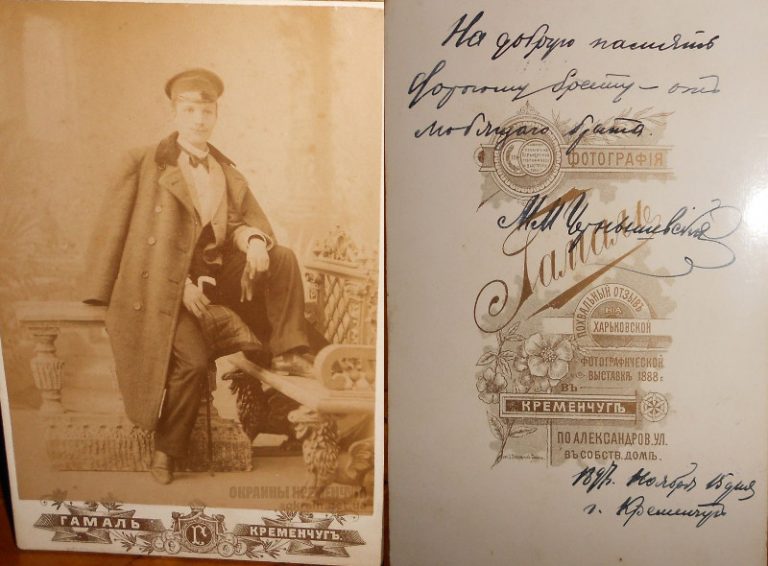 ОКРАИНЫ КРЕМЕНЧУГА
ГАМАЛЬ
Г
КРЕМЕНЧУГЪ.
На добрую память
дорогому брату – отъ
любящаго брата.
ФОТОГРАФІЯ
М Чернышевскій
Гамаль
ПОХВАЛЬНЫЙ ОТЗЫВЪ
НА
ХАРЬКОВСКОЙ
ФОТОГРАФИЧЕСКОЙ
ВЫСТАВКѢ 1888 г.
ВЪ
КРЕМЕНЧУГѢ
ПО АЛЕКСАНДРОВ. УЛ.
ВЪ СОБСТВ. ДОМѢ.
1897. Ноября 15 дня
г. Кременчугъ